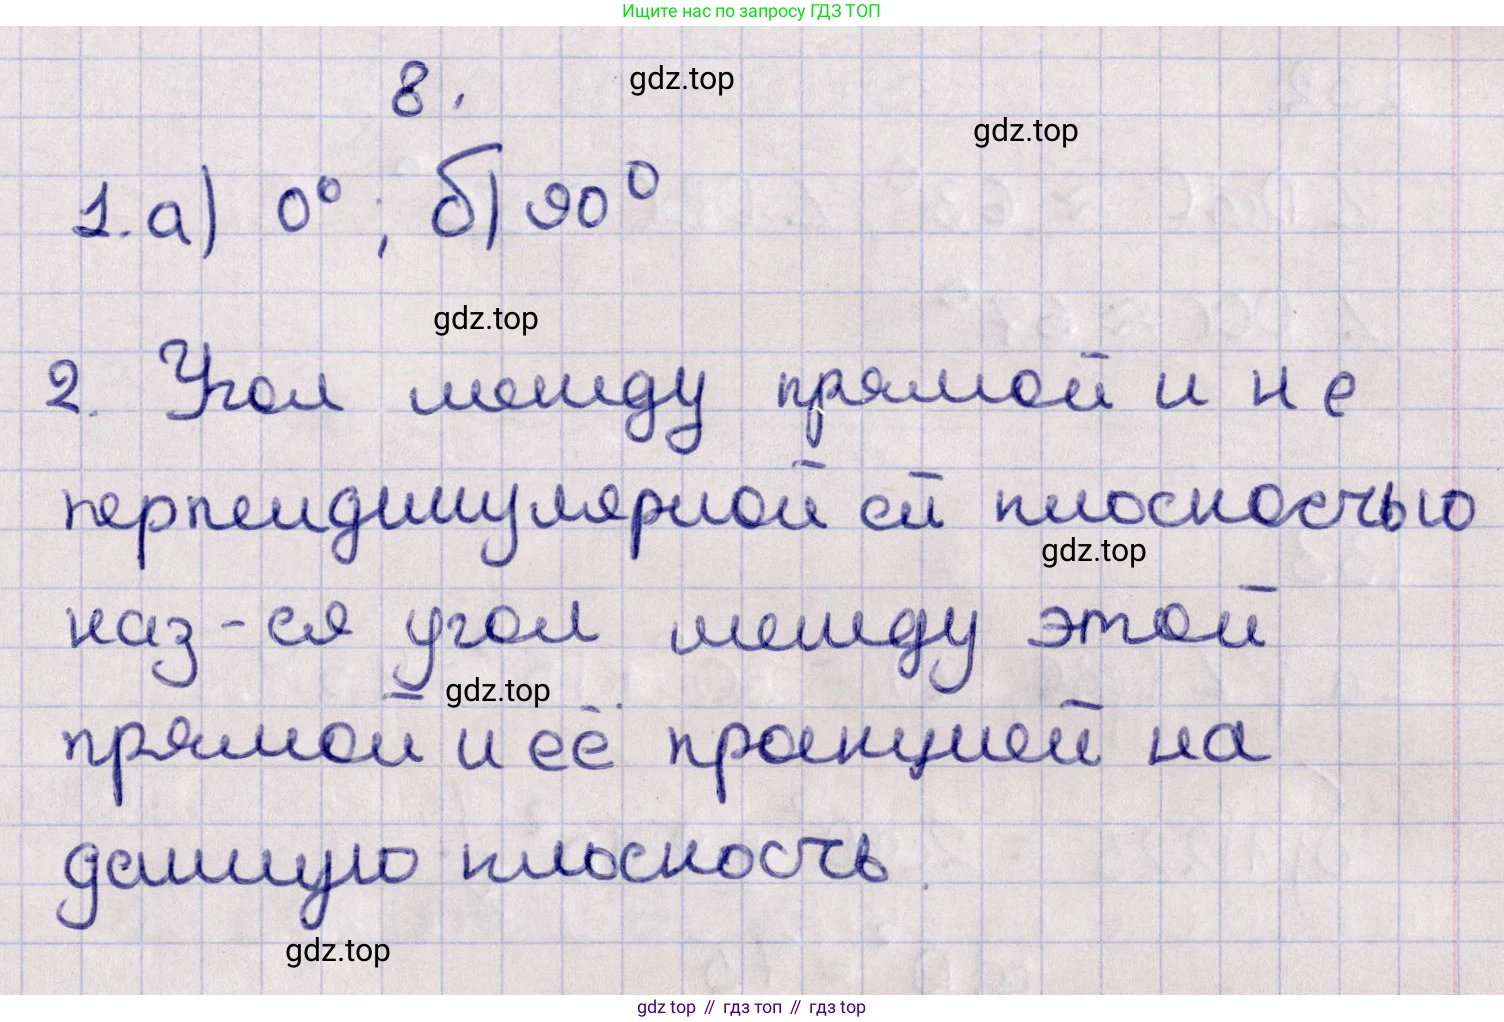 Ищите нас по запросу ГДЗ ТОП
8.
gdz.top
gdz.top
1. а) 0° ; б) 90°
gdz.top
2. Угол между прямой и не
перпендикулярной ей плоскостью
gdz.top
наз-ся угол между этой
gdz.top
прямой и её проекцией на
данную плоскость.
gdz.top
gdz top // гдз топ // гдз top